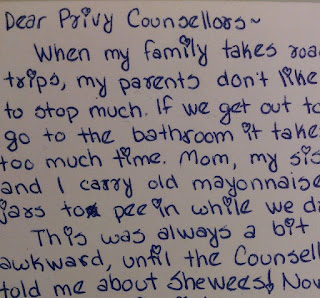 Dear Privy Counsellors~
When my family takes roa
trips, my parents don't like
to stop much. If we get out to
go to the bathroom it take
too much time. Mom, my sis
and I carry old mayonnaise
jars to pee in while we d
This was always a bit
awkward, until the Counsell
told me about Shewees! Now